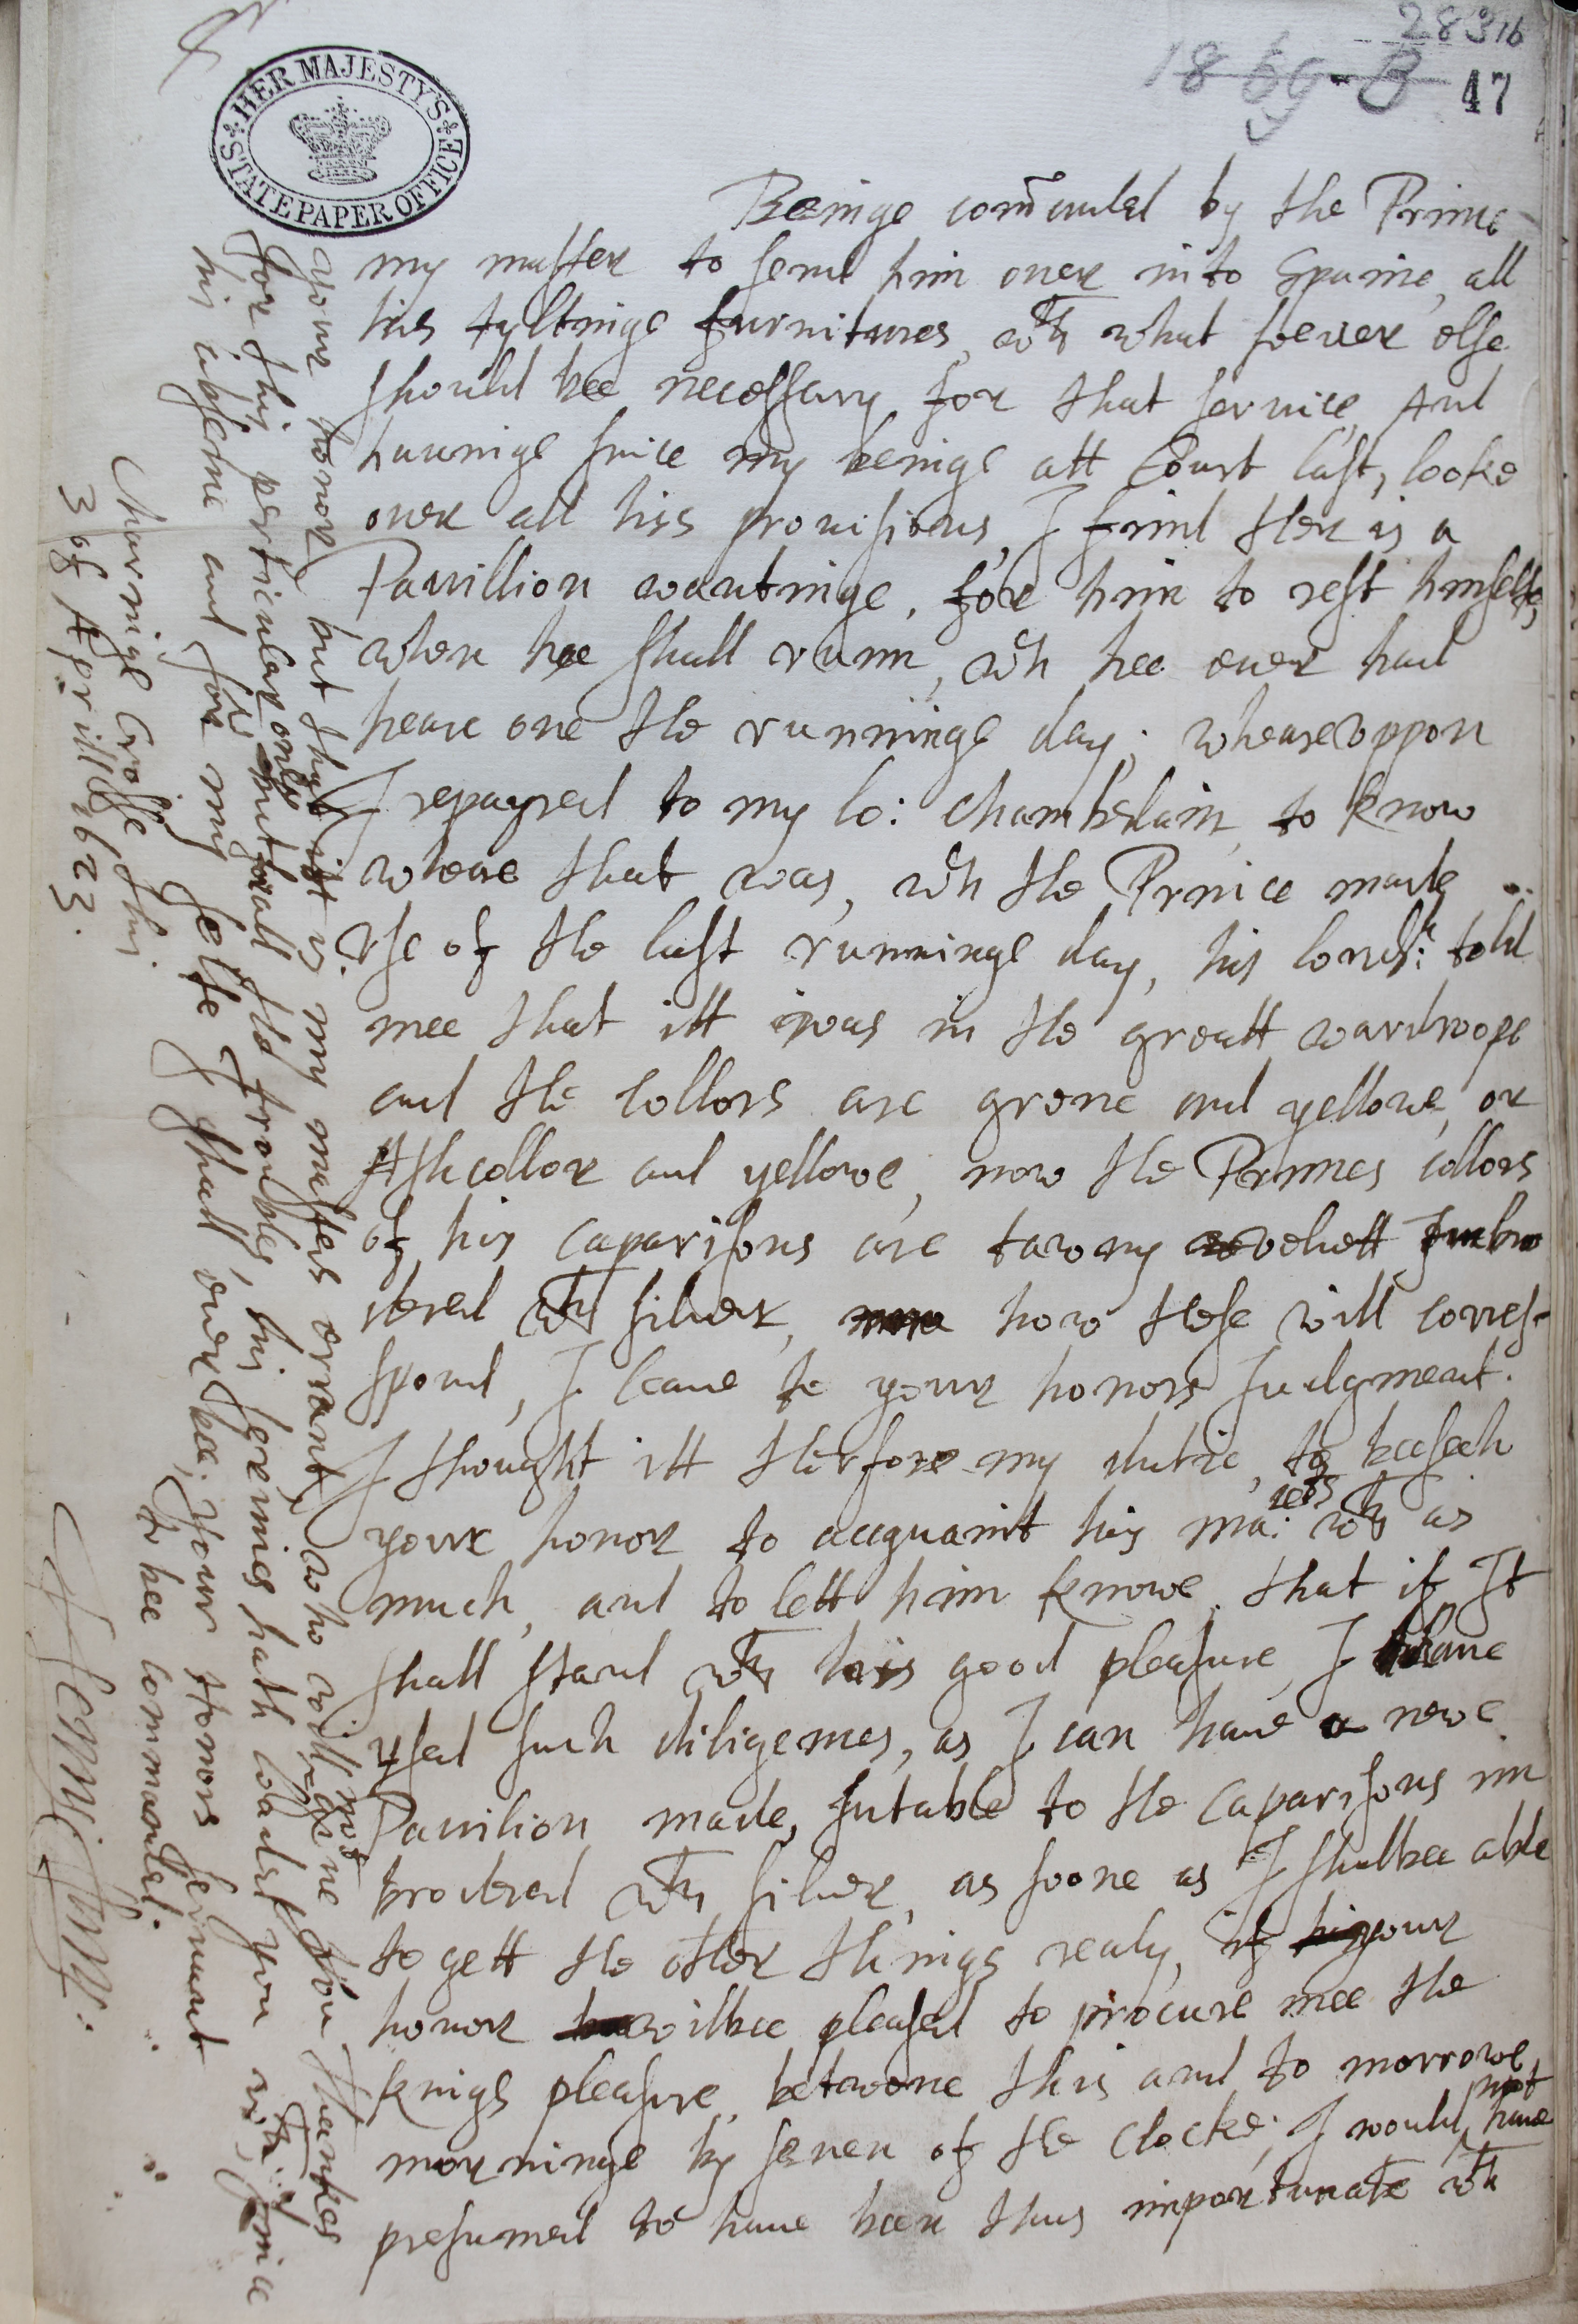 28316
1869-B 47
HER MAJESTY'S
STATE PAPER OFFICE
Beinge com̄anded by the Prince
my master to send him ouer into Spaine, all
his tyltinge furnitures, wth what soeuer else
should bee necessary for that seruice, And
hauinge since my beinge att Court last, looke
ouer all his prouisions, I find ther is a
Pauillion wantinge, for him to rest himselfe,
when hee shall runn, wch hee euer had
heare one the runninge day; wheareuppon
I repayred to my lo: Chamberlain, to know
wheare that was, wch the Prince made
vse of the last runninge day, his lordsp: told
mee that itt was in the greatt wardroope
and the Collors are grene and yellowe, or
Ashcollor and yellowe, now the Princes collors
of his Caparisons are tawny veluett Imbro
dered wth siluer, how these will corres-
spond, I leaue to your honors Judgment.
I thought itt therfore my dutie, to beeseech
your honor to acquaint his ma:ties wth as
much, and to lett him knowe, that if It
shall stand wth his good pleasure, I haue
vsed such diligences, as I can haue a newe
Pauilion made, sutable to the Caparisons im
brodered wth siluer, as soone as I shalbee able
to gett the other things ready, if your
honor wilbee pleased to procure mee the
kings pleasure, betweene this and to morrowe
morninge by seuen of the Clocke; I would not haue
presumed to haue been thus importunate wth
your honor, but that itt is my masters errant, who will not giue you thankes
for this perticular only but for all the troubles, his seruies hath coaused you wth, since
his absence and for my selfe I shall euer bee, your Honors seruant
to bee commanded.
Charinge Crosse this
3 of Aprill 1623.